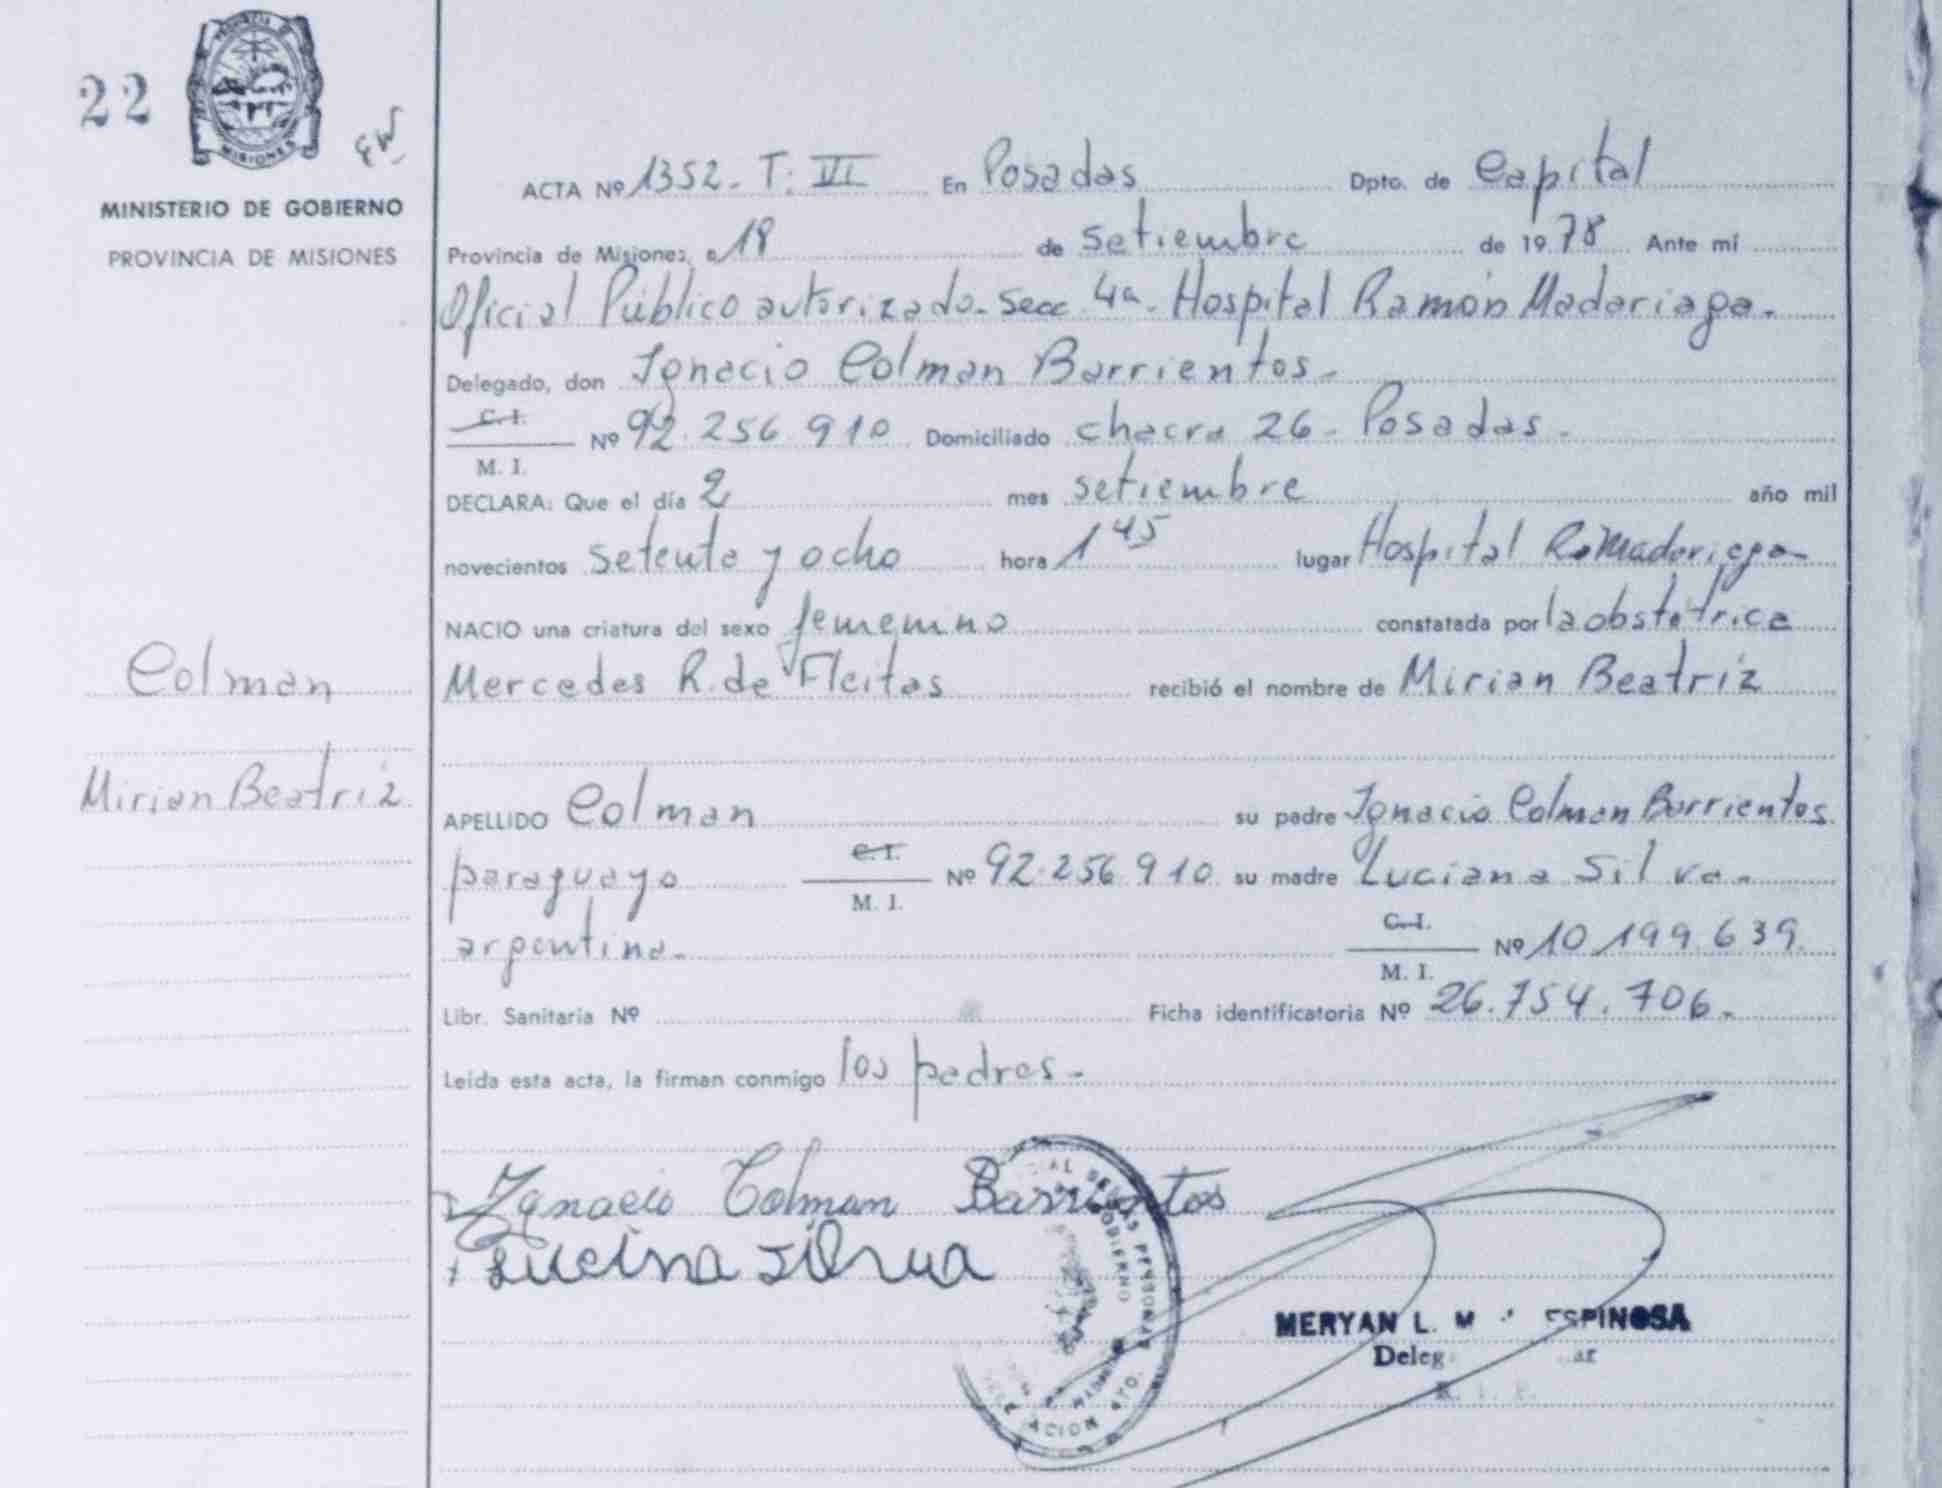 22
MISIONES
MINISTERIO DE GOBIERNO
PROVINCIA DE MISIONES
ACTA Nº 1352. T: VI En Posadas Dpto. de Capital
Provincia de Misiones, a 18 de setiembre de 1978 Ante mí
Oficial Público autorizado. Secc. 4a. Hospital Ramón Madariaga.
Delegado, don Ignacio Colman Barrientos.
C. I.
Nº 92.256.910 Domiciliado chacra 26. Posadas.
M. I.
DECLARA: Que el día 2 mes setiembre año mil
novecientos setenta y ocho hora 1 45 lugar Hospital R. Madariaga
NACIO una criatura del sexo femenino constatada por la obstetrica
Mercedes R. de Fleitas recibió el nombre de Mirian Beatriz
Colman
Mirian Beatriz
APELLIDO Colman su padre Ignacio Colman Barrientos.
paraguayo C. I. Nº 92.256.910 su madre Luciana Silva.
M. I.
argentina. C. I. Nº 10.199.639.
M. I.
Libr. Sanitaria Nº Ficha identificatoria Nº 26.754.706.
Leída esta acta, la firman conmigo los padres.
Ignacio Colman Barrientos
Lucina Silva
MERYAN L. ESPINOSA